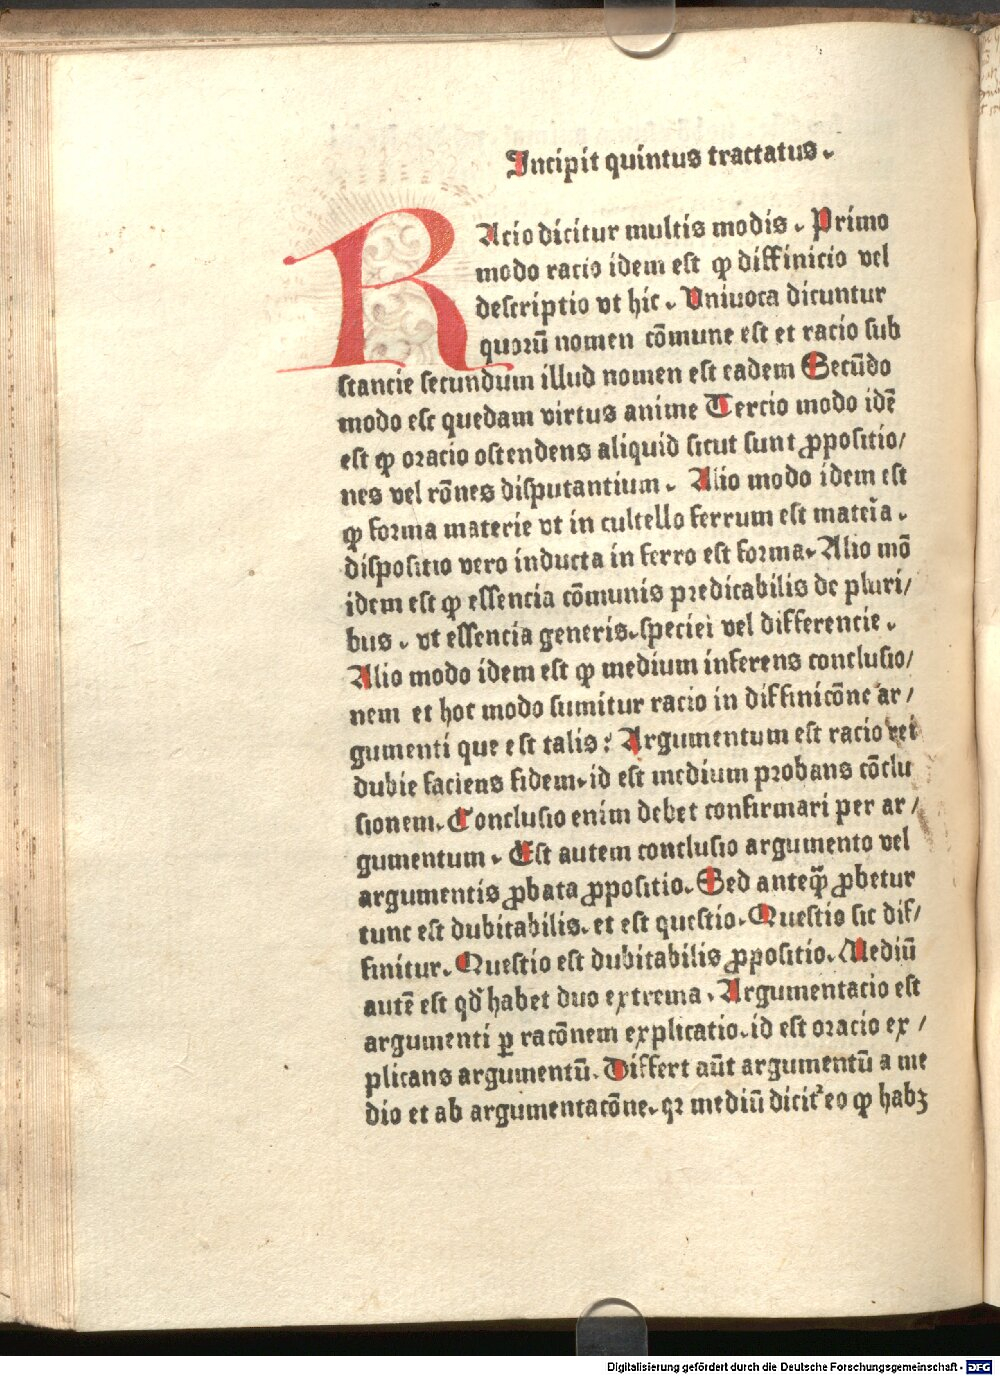 Incipit quintus tractatus.
RAcio dicitur multis modis. Primo
modo racio idem est ꝙ diffinicio vel
descriptio vt hic. Vniuoca dicuntur
quorū nomen cōmune est et racio sub
stancie secundum illud nomen est eadem Secūdo
modo est quedam virtus anime Tercio modo idē
est ꝙ oracio ostendens aliquid sicut sunt ꝓpositio/
nes vel rōnes disputantium. Alio modo idem est
ꝙ forma materie vt in cultello ferrum est mateĩa.
dispositio vero inducta in ferro est forma. Alio mō
idem est ꝙ essencia cōmunis predicabilis de pluri/
bus. vt essencia generis. speciei vel differencie.
Alio modo idem est ꝙ medium inferens conclusio/
nem et hoc modo sumitur racio in diffinicōne ar/
gumenti que est talis: Argumentum est racio rei
dubie faciens fidem. id est medium probans cōclu
sionem. Conclusio enim debet confirmari per ar/
gumentum. Est autem conclusio argumento vel
argumentis ꝓbata ꝓpositio. Sed anteq̄ ꝓbetur
tunc est dubitabilis. et est questio. Questio sic dif/
finitur. Questio est dubitabilis ꝓpositio. Mediū
autē est qd̄ habet duo extrema. Argumentacio est
argumenti ꝑ racōnem explicatio. id est oracio ex/
plicans argumentū. Differt aūt argumentū a me
dio et ab argumentacōne. qꝛ mediū dicit᷑ eo ꝙ habꝫ
Digitalisierung gefördert durch die Deutsche Forschungsgemeinschaft - DFG